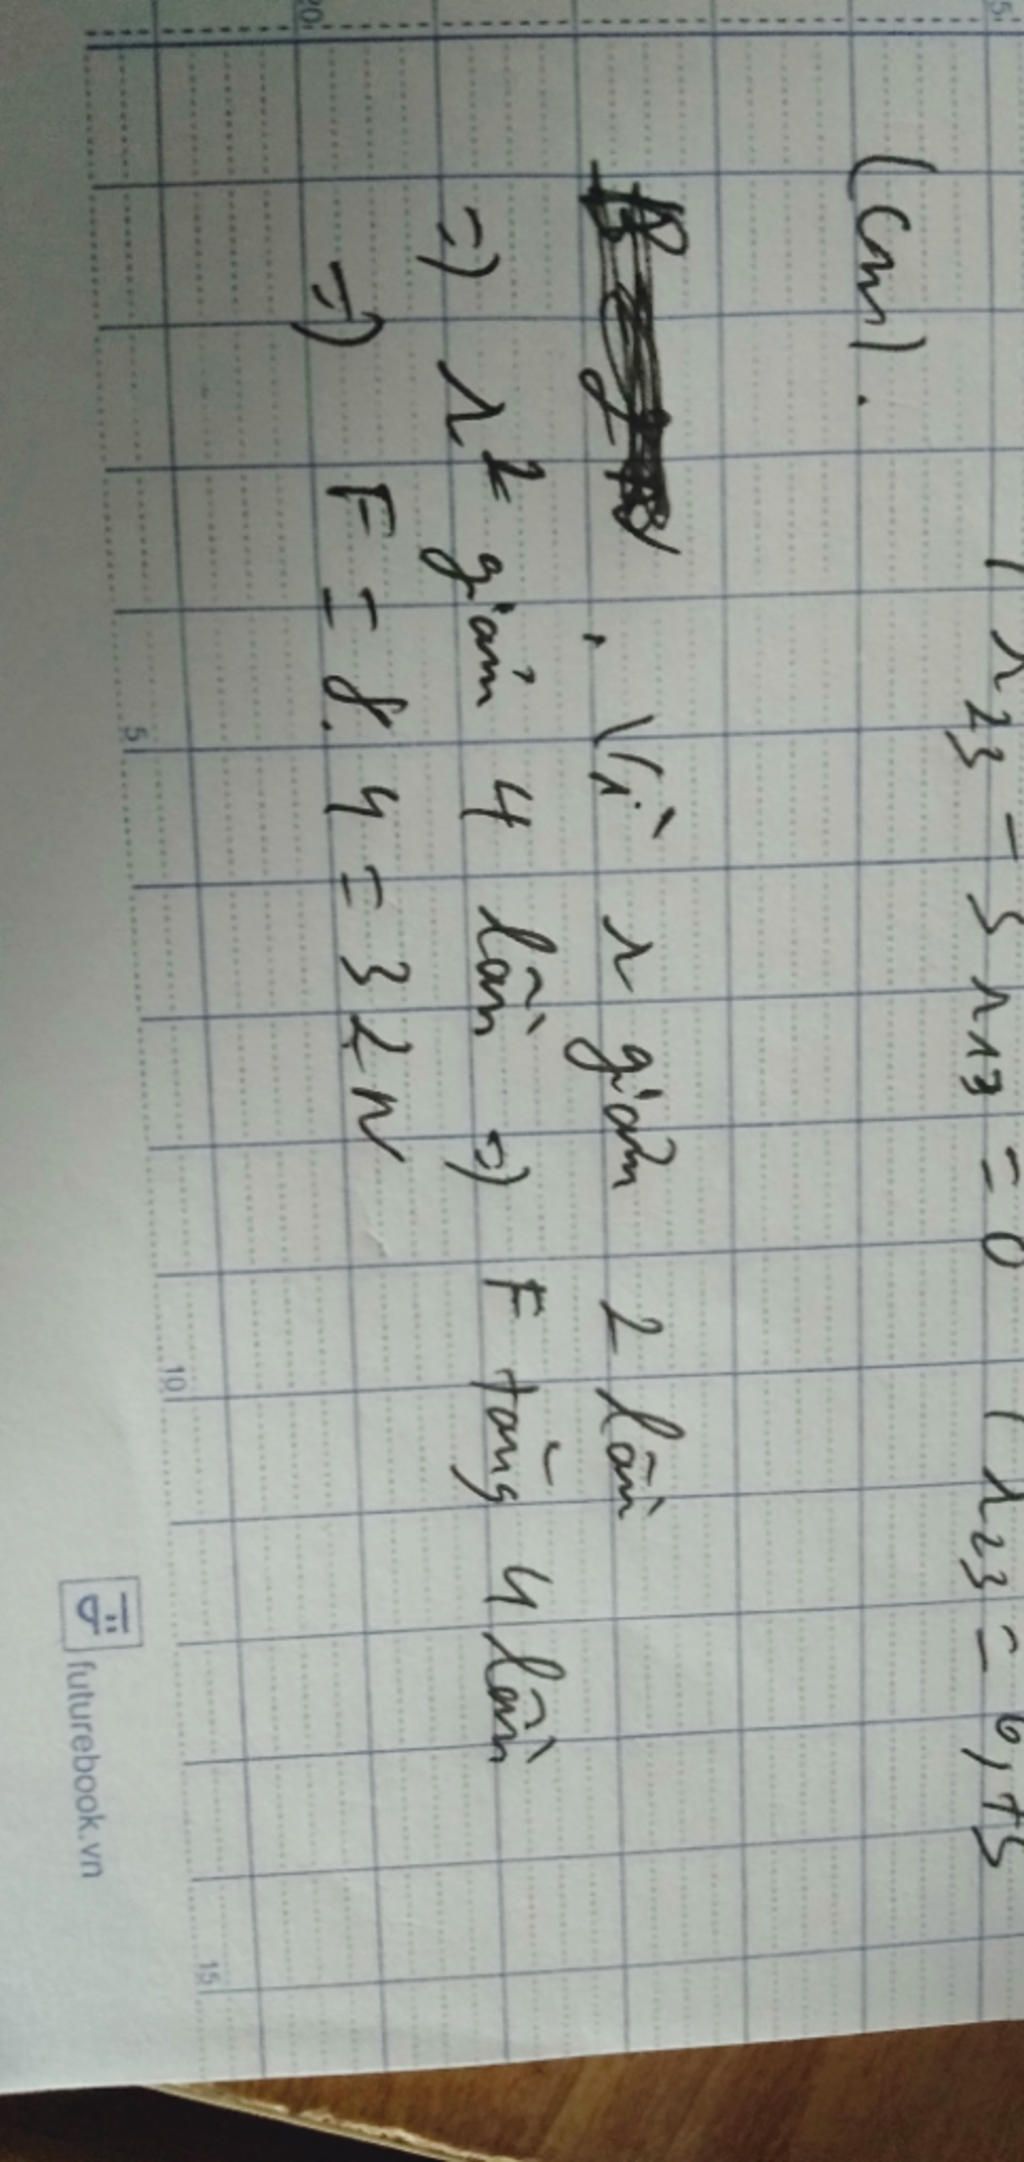 r23 - 3 r13 = 0 r23 = 6,75
(cm).
Vì r giảm 2 lần
=) r² giảm 4 lần =) F tăng 4 lần
=) F = 8.4 = 32N
5
10
15
20
5
futurebook.vn